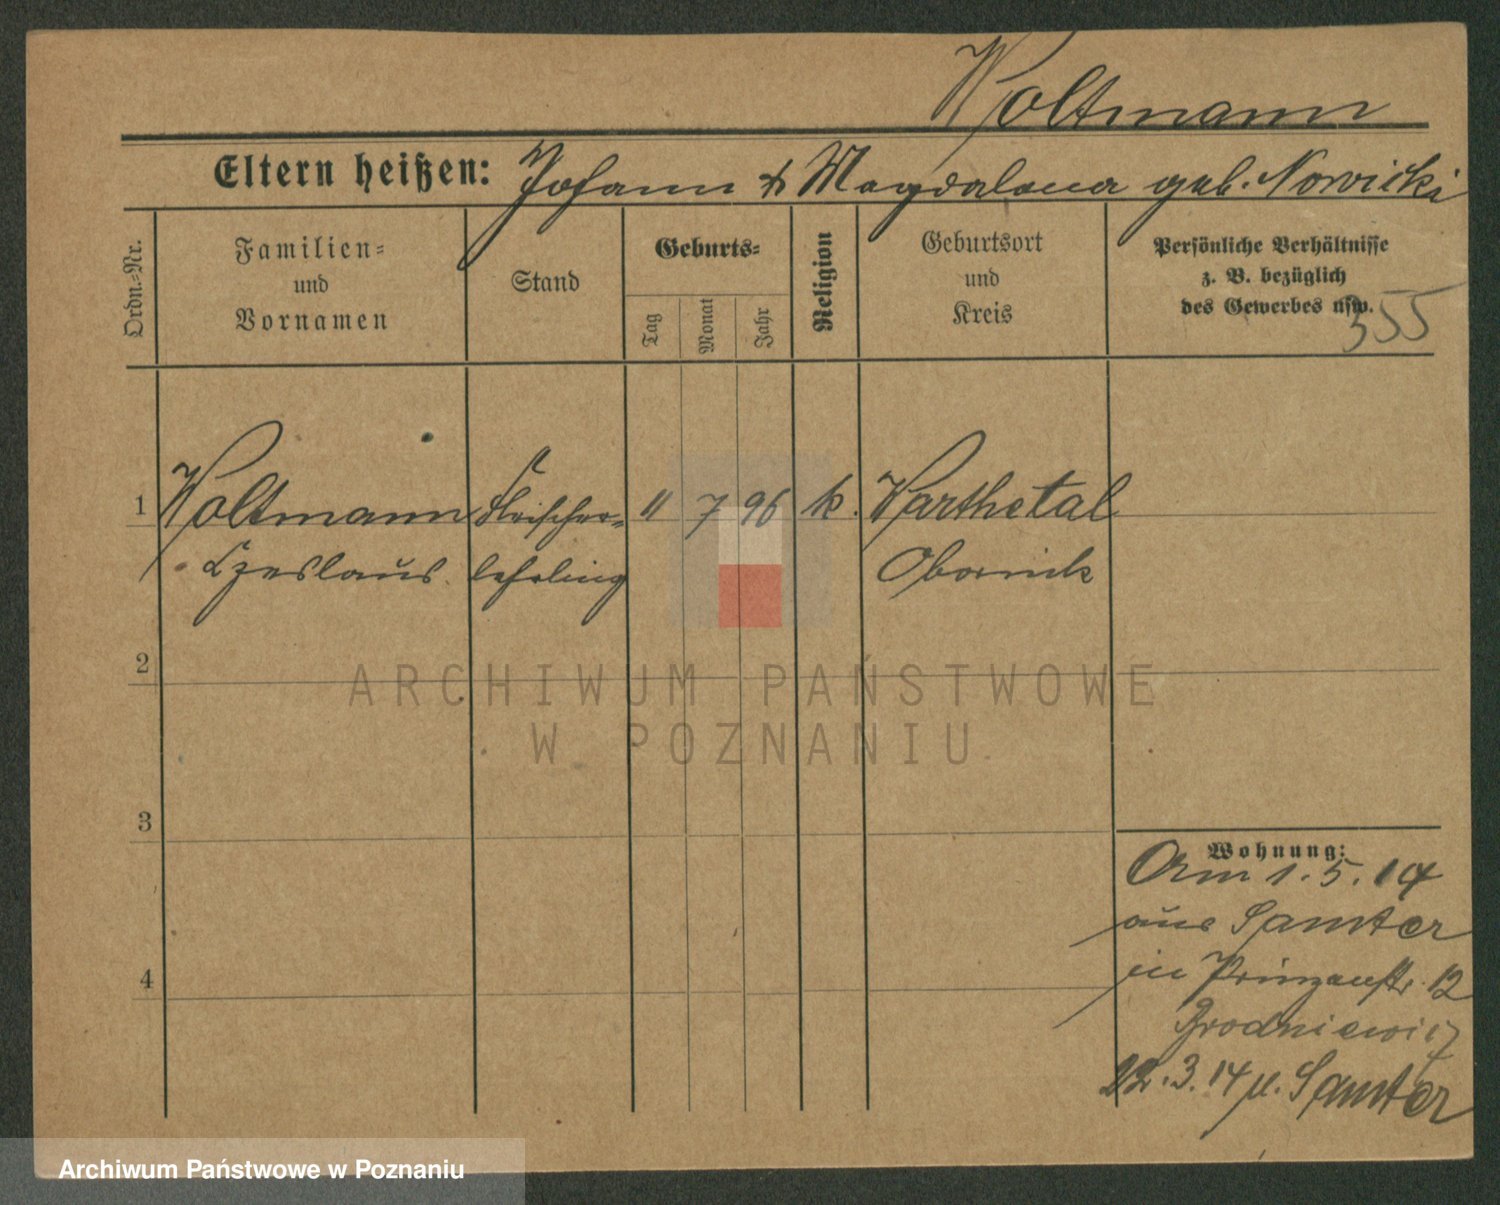 Woltmann
Eltern heißen: Johann & Magdalena geb. Nowicki
Ordn.=Nr.
Familien=
und
Vornamen
Stand
Geburts=
Tag
Monat
Jahr
Religion
Geburtsort
und
Kreis
Persönliche Verhältnisse
z. B. bezüglich
des Gewerbes usw.
355
1 Woltmann Fleischer= 11 7 96 k. Warthetal
Czeslaus lehrling Obornik
2
ARCHIWUM PAŃSTWOWE
W POZNANIU
3
Wohnung:
Am 1.5.14
aus Samter
in Prinzenstr. 12
4
Brodniewicz
22.3.14 n. Samter
Archiwum Państwowe w Poznaniu